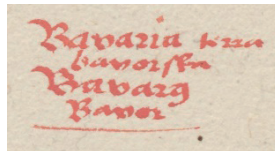 Bavaria terra
bavorska
Bavarꝰ
Bavor